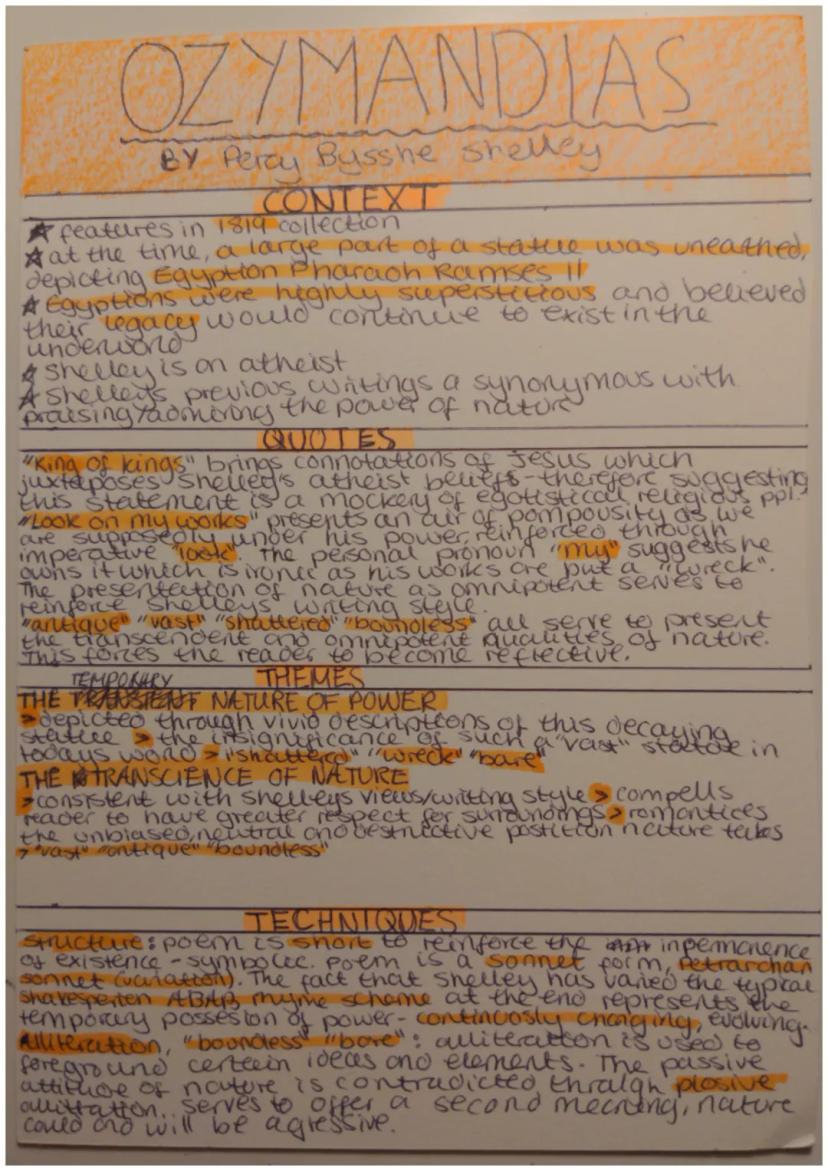 OZYMANDIAS
BY Percy Bysshe Shelley
CONTEXT
★ features in 1819 collection
★ at the time, a large part of a statue was unearthed,
depicting Egyption Pharaoh Ramses II
★ Egyptions were highly superstitious and believed
their legacy would continue to exist in the
underworld
★ Shelley is an atheist
★ Shelleys previous writings a synonymous with
praising/admiring the power of nature
QUOTES
"King of kings" brings connotations of Jesus which
juxtaposes Shelley's atheist beliefs - therefore suggesting
this statement is a mockery of egotistical religious ppl.
"Look on my works" presents an air of pompousity as we
are supposedly under his power, reinforced through
imperative "look". The personal pronoun "my" suggests he
owns it which is ironic as his works are but a "wreck".
The presentation of nature as omnipotent serves to
reinforce Shelleys writing style.
"antique" "vast" "shattered" "boundless" all serve to present
the transcendent and omnipotent qualities of nature.
This forces the reader to become reflective.
THEMES
TEMPORARY
THE TRANSIENT NATURE OF POWER
>depicted through vivid descriptions of this decaying
statue > the insignificance of such a "vast" statue in
todays world > "shattered" "wreck" "bare"
THE TRANSCIENCE OF NATURE
>consistent with Shelleys views/writing style > compells
reader to have greater respect for surroundings > romantices
the unbiased, neutral and destructive postition nature takes
>"vast" "antique" "boundless"
TECHNIQUES
Structure: poem is short to reinforce the inpermanence
of existence - symbolic. Poem is a sonnet form, petrarchan
sonnet (variation). The fact that Shelley has varied the typical
shakesperian ABAB rhyme scheme at the end represents the
temporary possesion of power - continuosly changing, evolving.
Alliteration, "boundless" "bare": alliteration is used to
foreground certain ideas and elements. The passive
attitude of nature is contradicted through plosive
allittration, serves to offer a second meaning, nature
could and will be agressive.